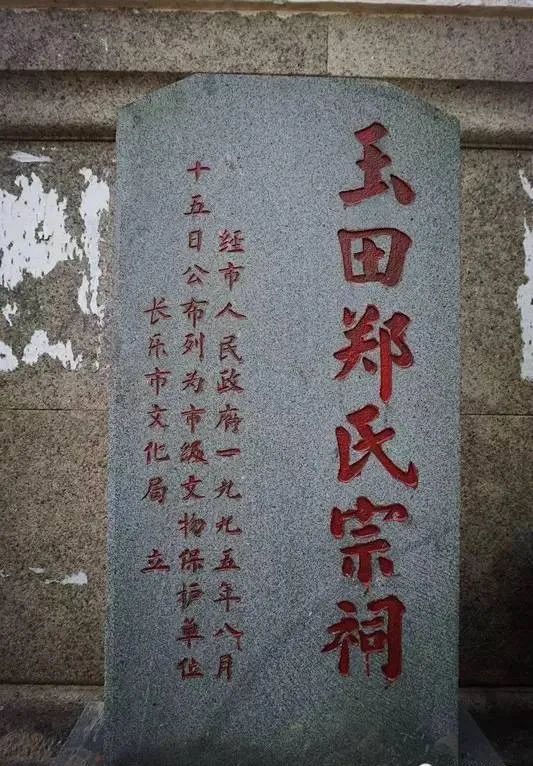 玉田郑氏宗祠
经市人民政府一九九五年八月
十五日公布列为市级文物保护单位
长乐市文化局 立